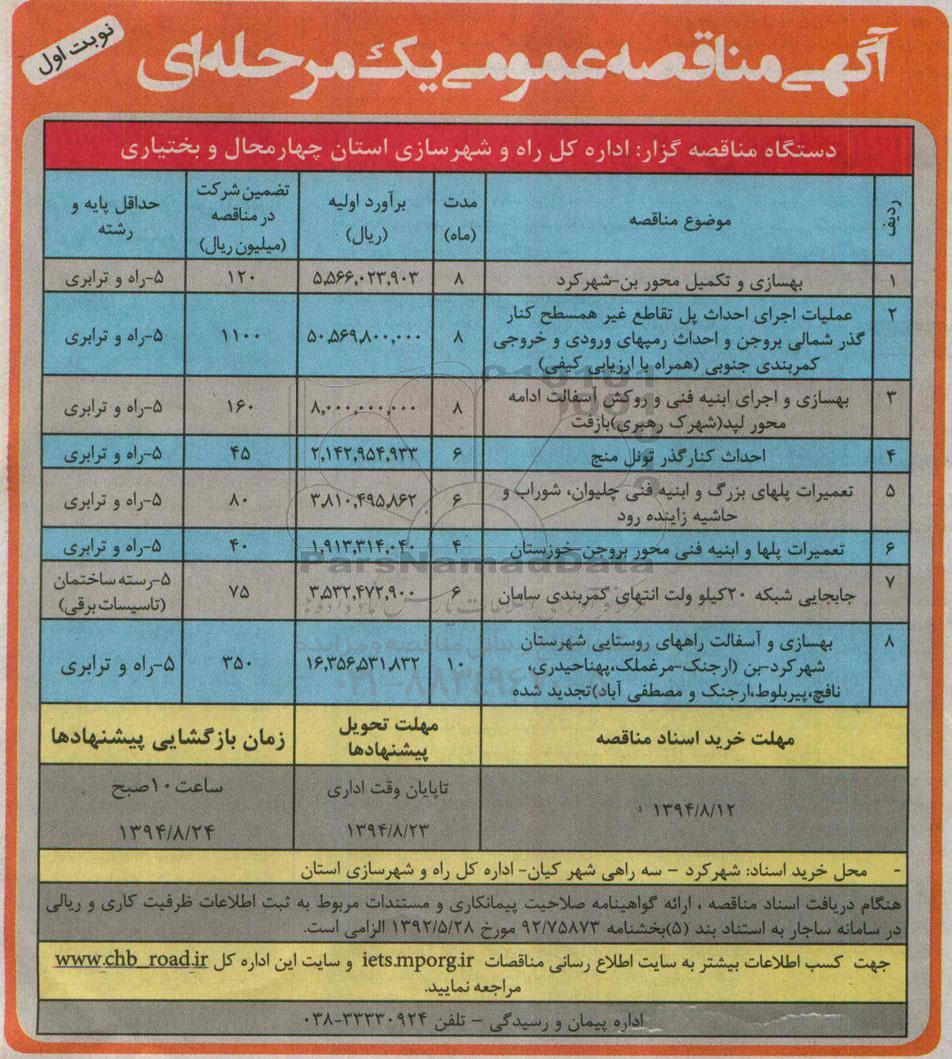 آگهی مناقصه عمومی یک مرحله‌ای
نوبت اول
دستگاه مناقصه گزار: اداره کل راه و شهرسازی استان چهارمحال و بختیاری
ردیف | موضوع مناقصه | مدت (ماه) | برآورد اولیه (ریال) | تضمین شرکت در مناقصه (میلیون ریال) | حداقل پایه و رشته
۱ | بهسازی و تکمیل محور بن-شهرکرد | ۸ | ۵,۵۶۶,۰۲۳,۹۰۳ | ۱۲۰ | ۵-راه و ترابری
۲ | عملیات اجرای احداث پل تقاطع غیر همسطح کنار
گذر شمالی بروجن و احداث رمپهای ورودی و خروجی
کمربندی جنوبی (همراه با ارزیابی کیفی) | ۸ | ۵۰,۵۶۹,۸۰۰,۰۰۰ | ۱۱۰۰ | ۵-راه و ترابری
۳ | بهسازی و اجرای ابنیه فنی و روکش آسفالت ادامه
محور لپد(شهرک رهبری)بازفت | ۸ | ۸,۰۰۰,۰۰۰,۰۰۰ | ۱۶۰ | ۵-راه و ترابری
۴ | احداث کنارگذر تونل منج | ۶ | ۲,۱۴۲,۹۵۴,۹۳۳ | ۴۵ | ۵-راه و ترابری
۵ | تعمیرات پلهای بزرگ و ابنیه فنی چلیوان، شوراب و
حاشیه زاینده رود | ۶ | ۳,۸۱۰,۴۹۵,۸۶۲ | ۸۰ | ۵-راه و ترابری
۶ | تعمیرات پلها و ابنیه فنی محور بروجن-خوزستان | ۴ | ۱,۹۱۳,۳۱۴,۰۴۰ | ۴۰ | ۵-راه و ترابری
۷ | جابجایی شبکه ۲۰کیلو ولت انتهای کمربندی سامان | ۶ | ۳,۵۳۲,۴۷۲,۹۰۰ | ۷۵ | ۵-رسته ساختمان (تاسیسات برقی)
۸ | بهسازی و آسفالت راههای روستایی شهرستان
شهرکرد-بن (ارجنک-مرغملک،پهناحیدری،
نافچ،پیربلوط،ارجنک و مصطفی آباد)تجدید شده | ۱۰ | ۱۶,۳۵۶,۵۳۱,۸۳۲ | ۳۵۰ | ۵-راه و ترابری
مهلت خرید اسناد مناقصه | مهلت تحویل پیشنهادها | زمان بازگشایی پیشنهادها
۱۳۹۴/۸/۱۲ | تاپایان وقت اداری ۱۳۹۴/۸/۲۳ | ساعت ۱۰صبح ۱۳۹۴/۸/۲۴
- محل خرید اسناد: شهرکرد – سه راهی شهر کیان- اداره کل راه و شهرسازی استان
هنگام دریافت اسناد مناقصه ، ارائه گواهینامه صلاحیت پیمانکاری و مستندات مربوط به ثبت اطلاعات ظرفیت کاری و ریالی
در سامانه ساجار به استناد بند (۵)بخشنامه ۹۲/۷۵۸۷۳ مورخ ۱۳۹۲/۵/۲۸ الزامی است.
جهت کسب اطلاعات بیشتر به سایت اطلاع رسانی مناقصات iets.mporg.ir و سایت این اداره کل www.chb_road.ir
مراجعه نمایید.
اداره پیمان و رسیدگی – تلفن ۳۳۳۳۰۹۲۴-۰۳۸
ParsNamadData
۰۲۱-۸۸۳۴۹۶۷۰